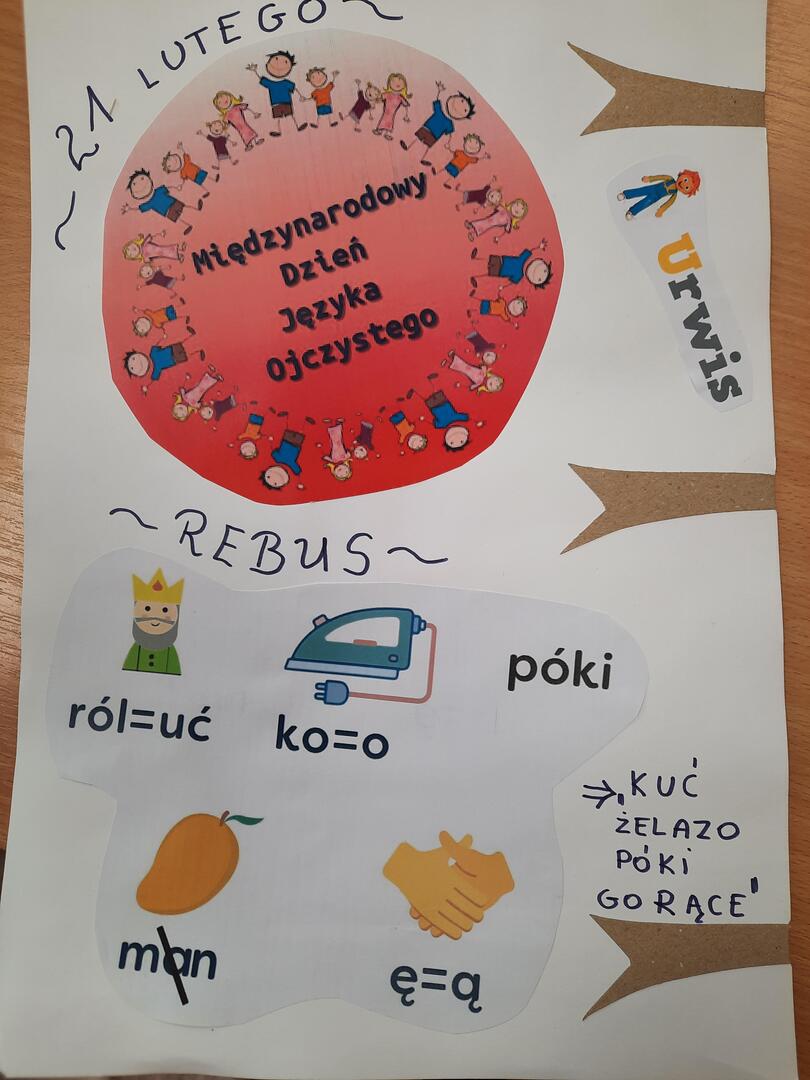 ~ 21 LUTEGO ~
Międzynarodowy
Dzień
Języka
Ojczystego
Urwis
~ REBUS ~
ról=uć
ko=o
póki
man
ę=ą
⇒ „KUĆ
ŻELAZO
PÓKI
GORĄCE"